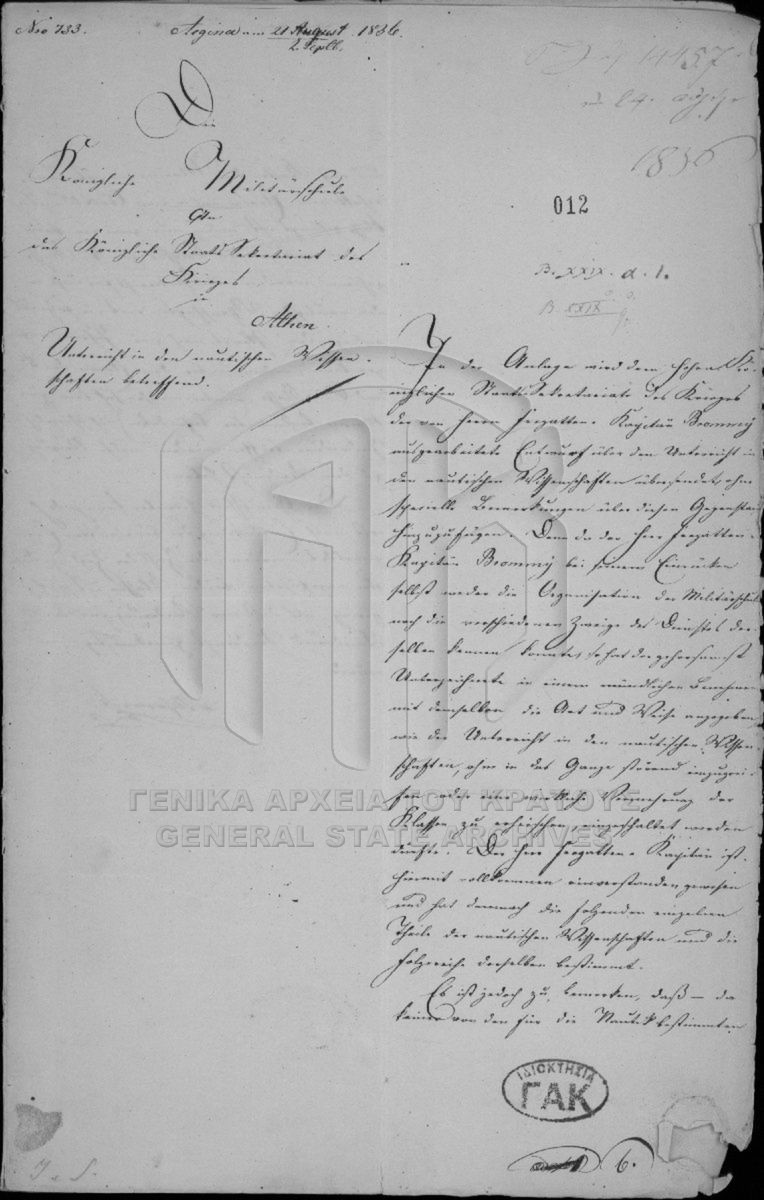 Nro 733. Aegina am 21 August / 2. Septb. 1836.
14457
1836
Die
Königliche Militärschule
An
das Königliche Staats Sekretariat des
Krieges
in
Athen.
Unterricht in den nautischen Wissen-
schaften betreffend.
012
B. XXIX. a. 1.
B. XXIX
In der Anlage wird dem hohen Kö-
niglichen Staats Sekretariate des Krieges
der von Herrn Fregatten-Kapitän Brommÿ
ausgearbeitete Entwurf über den Unterricht in
den nautischen Wissenschaften übersendet, ohne
spezielle Bemerkungen über diesen Gegenstand
hinzuzufügen. Denn da der Herr Fregatten-
Kapitän Brommÿ bei seinem Einrücken
selbst weder die Organisation der Militärschule
noch die verschiedenen Zweige des Dienstes der-
selben kennen konnte, so hat der gehorsamst
Unterzeichnete in einem mündlichen Benehmen
mit demselben die Art und Weise angegeben,
wie der Unterricht in den nautischen Wissen-
schaften, ohne in das Ganze störend einzugrei-
fen oder eine wirkliche Vermehrung der
Klassen zu erheischen, eingeschaltet werden
dürfte. Der Herr Fregatten-Kapitän ist
hiemit vollkommen einverstanden gewesen
und hat demnach die folgenden einzelnen
Theile der nautischen Wissenschaften und die
Folgereihe derselben bestimmt.
Es ist jedoch zu bemerken, daß – da
keiner von den für die Nautik bestimmten
ΓΕΝΙΚΑ ΑΡΧΕΙΑ ΤΟΥ ΚΡΑΤΟΥΣ
GENERAL STATE ARCHIVES
ΙΔΙΟΚΤΗΣΙΑ
ΓΑΚ
6.